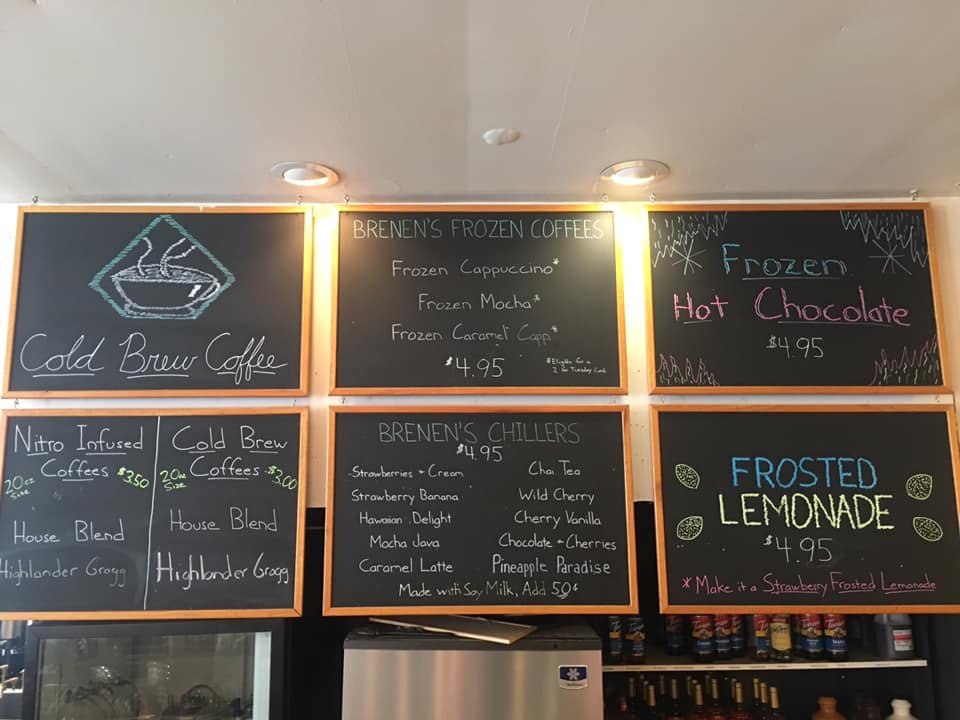 Cold Brew Coffee
BRENEN'S FROZEN COFFEES
Frozen Cappuccino*
Frozen Mocha*
Frozen Caramel Capp*
$4.95
*Eligible for a
2 for Tuesday Card
Frozen
Hot Chocolate
$4.95
Nitro Infused
Coffees $3.50
20oz
Size
House Blend
Highlander Grogg
Cold Brew
Coffees -$3.00
20oz
Size
House Blend
Highlander Grogg
BRENEN'S CHILLERS
$4.95
Strawberries + Cream
Strawberry Banana
Hawaiian Delight
Mocha Java
Caramel Latte
Chai Tea
Wild Cherry
Cherry Vanilla
Chocolate + Cherries
Pineapple Paradise
Made with Soy Milk, Add 50¢
FROSTED
LEMONADE
$4.95
* Make it a Strawberry Frosted Lemonade